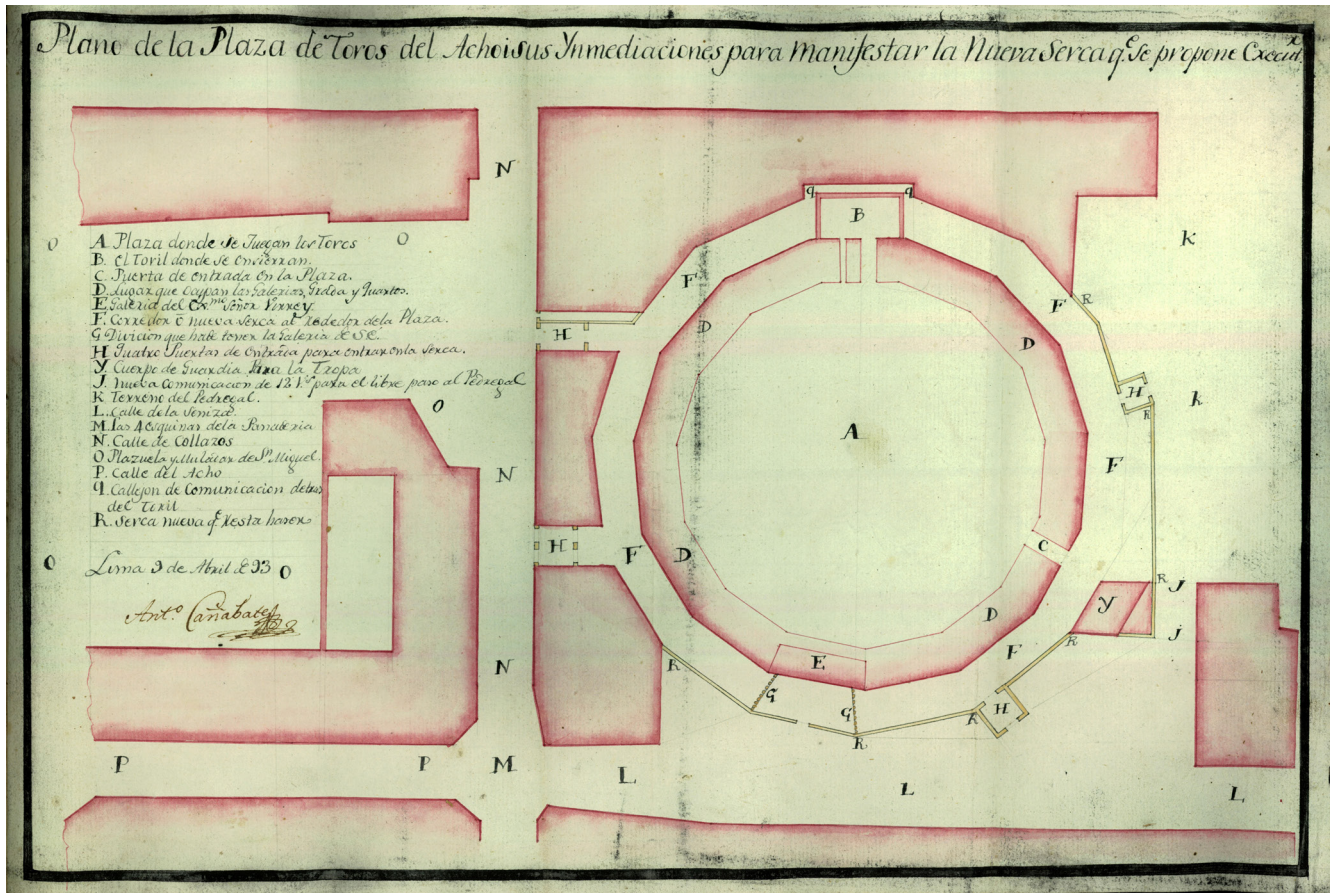 Plano de la Plaza de Toros del Acho i sus Ynmediaciones para manifestar la Nueva Serca q.e se propone Execut.r
N
q q
B
k
O O
A Plaza donde se Juegan los Toros
B. el Toril donde se Encierran.
C. Puerta de entrada en la Plaza.
D. Lugar que ocupan las Galerias, Grada y Quartos.
E Galeria del Ex.mo Señor Virrey.
F. Corredor o nueva Serca al rededor de la Plaza.
G Divicion que habe tener la Galeria de S.E.
H Quatro Puertas de entrada para entrar en la Serca.
Y. Cuerpo de Guardia para la Tropa
J. nueva comunicacion de 12 v.s para el libre paso al Pedregal
K Terreno del Pedregal.
L. Calle de la Seniza.
M. las 4 esquinas de la Panaderia
N. Calle de Collazos
O Plazuela y Muladar de S.n Miguel.
P. Calle del Acho
q. Callejon de Comunicacion detras
del Toril
R. Serca nueva q.e resta hacer
Lima 9 de Abril de 93
Ant.o Cañabate
F F R
H
D D
H k
R
O
A
F
N
H F D
C
O O
R J
Y
D
J
R
F
E
N R
G G
H
R
R
P P M L
L L